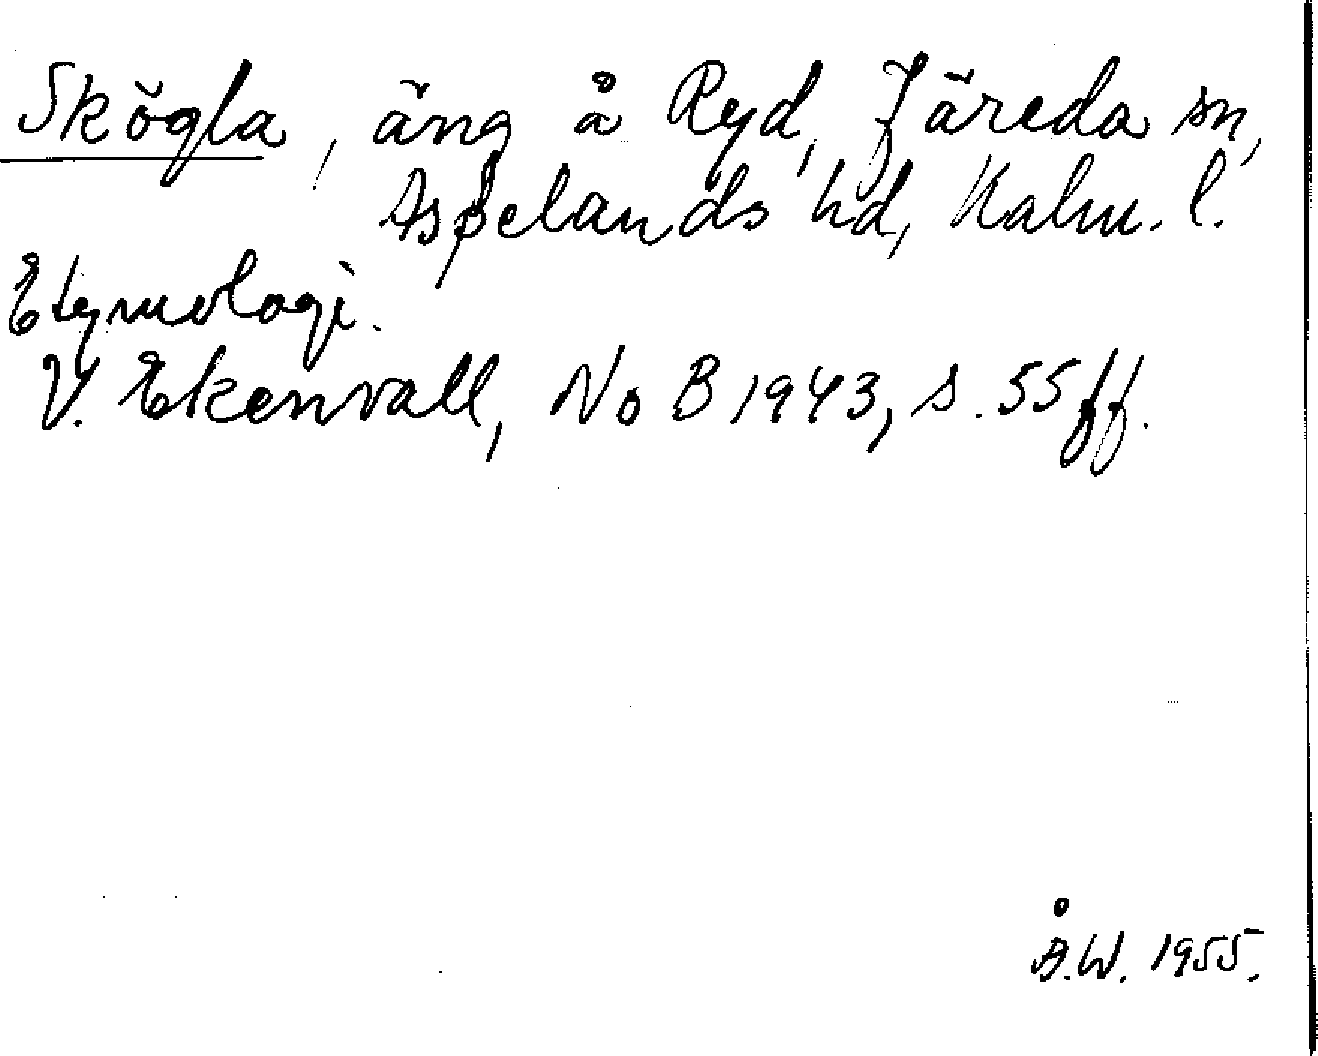 Skögla, äng å Ryd, Järeda sn,
Aspelands hd, Kalm. l.
Etymologi.
V. Ekenvall, NoB 1943, s. 55 ff.
Å.W. 1955.